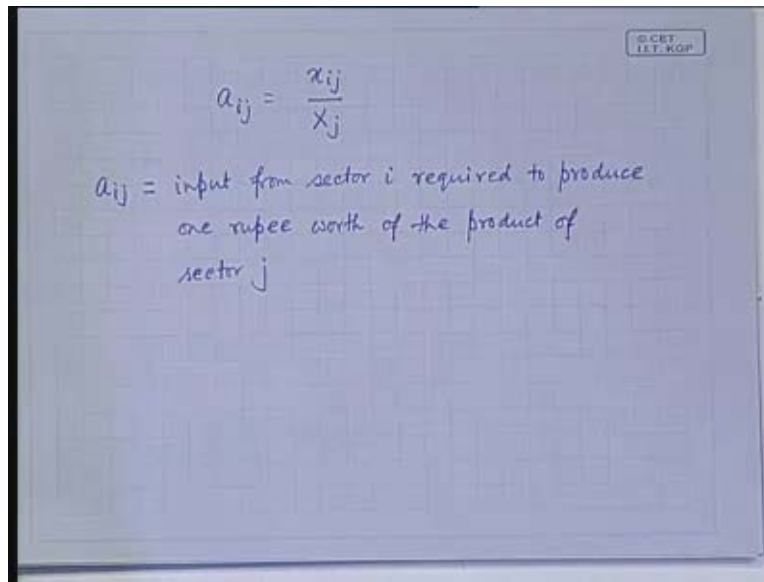 © CET
I.I.T. KGP
a_{ij} = \frac{x_{ij}}{X_j}
a_{ij} = input from sector i required to produce
one rupee worth of the product of
sector j